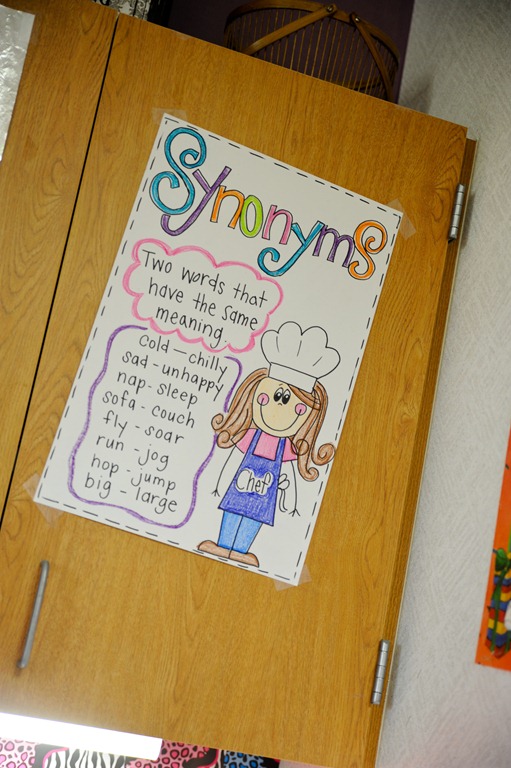 Synonyms
Two words that
have the same
meaning.
cold - chilly
sad - unhappy
nap - sleep
sofa - couch
fly - soar
run - jog
hop - jump
big - large
Chef